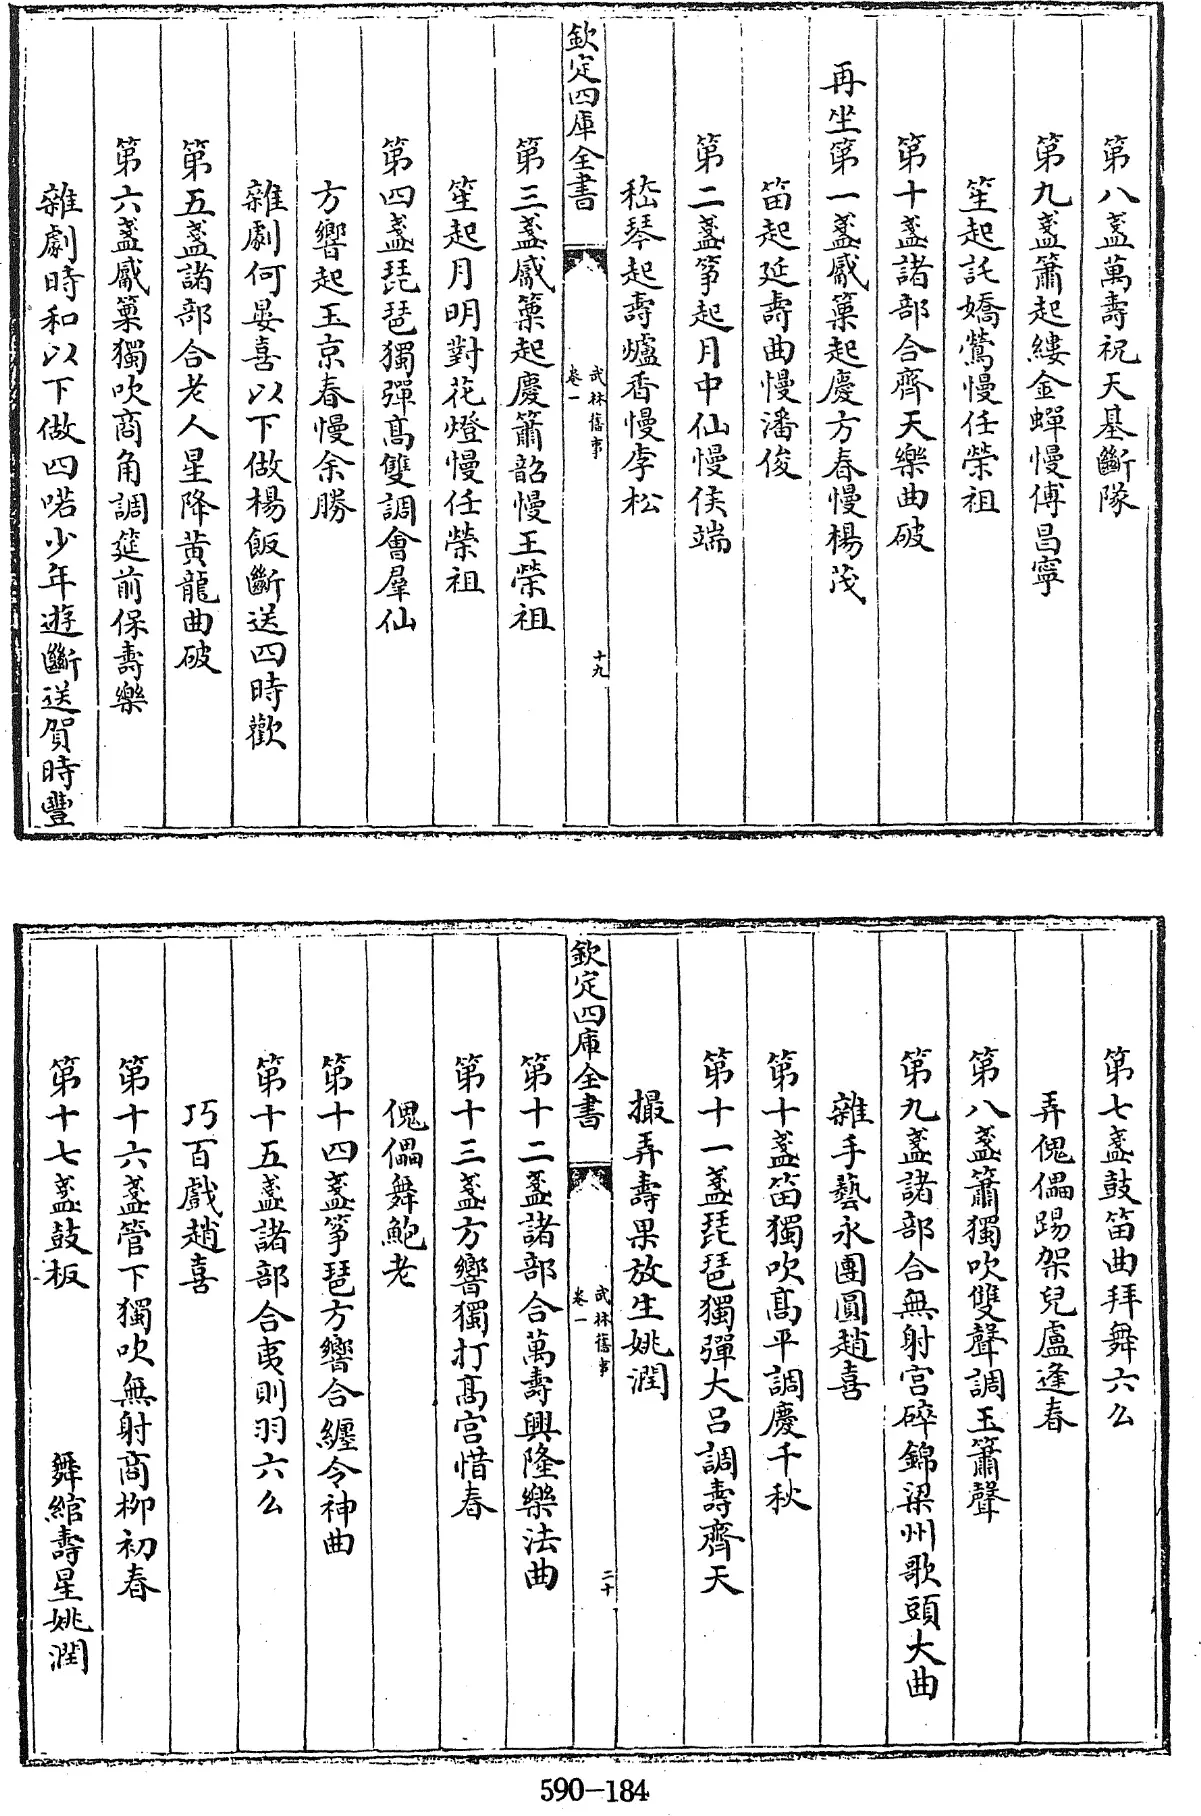 第八盞萬壽祝天基斷隊
第九盞簫起縷金蟬慢傅昌寧
笙起託嬌鶯慢任榮祖
第十盞諸部合齊天樂曲破
再坐第一盞觱篥起慶方春慢楊茂
笛起延壽曲慢潘俊
第二盞箏起月中仙慢侯端
嵇琴起壽爐香慢李松
欽定四庫全書
武林舊事
卷一
十九
第三盞觱篥起慶簫韶慢王榮祖
笙起月明對花燈慢任榮祖
第四盞琵琶獨彈高雙調會羣仙
方響起玉京春慢余勝
雜劇何晏喜以下做楊飯斷送四時歡
第五盞諸部合老人星降黄龍曲破
第六盞觱篥獨吹商角調筵前保壽樂
雜劇時和以下做四喏少年遊斷送賀時豐
第七盞鼓笛曲拜舞六么
弄傀儡踢架兒盧逢春
第八盞簫獨吹雙聲調玉簫聲
第九盞諸部合無射宫碎錦梁州歌頭大曲
雜手藝永團圓趙喜
第十盞笛獨吹高平調慶千秋
第十一盞琵琶獨彈大吕調壽齊天
撮弄壽果放生姚潤
欽定四庫全書
武林舊事
卷一
二十
第十二盞諸部合萬壽興隆樂法曲
第十三盞方響獨打高宫惜春
傀儡舞鮑老
第十四盞箏琶方響合纏令神曲
第十五盞諸部合夷則羽六么
巧百戲趙喜
第十六盞管下獨吹無射商柳初春
第十七盞鼓板 舞綰壽星姚潤
590-184